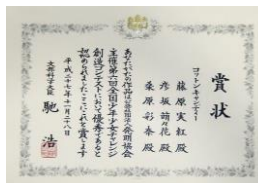 賞状
コットンキャンディー
藤原実紅殿
彦坂萌々花殿
桑原彩奏殿
あなたがたの作品は公益社団法人発明協会
主催第六回全国少年少女チャレンジ
創造コンテストにおいて優秀であると
認められましたのでこれを賞します
平成二十七年十一月二十八日
文部科学大臣 馳 浩